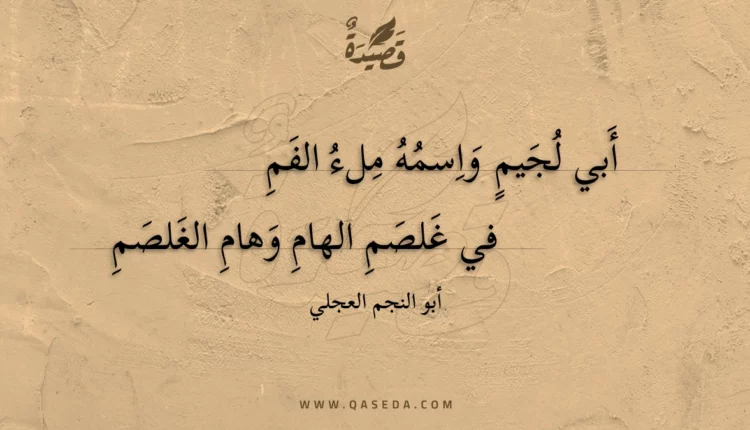 قَصِيْدَةٌ
أَبي لُجَيمٍ وَاِسمُهُ مِلءُ الفَمِ
في غَلصَمِ الهامِ وَهامِ الغَلصَمِ
أبو النجم العجلي
WWW.QASEDA.COM